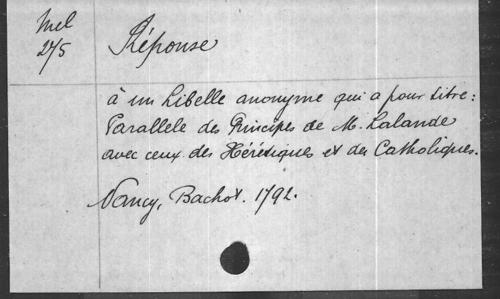 Mel
275
Réponse
à un Libelle anonyme qui a pour titre:
Parallele des Principes de M. Lalande
avec ceux des Hérétiques et des Catholiques.
Nancy, Bachot. 1792.